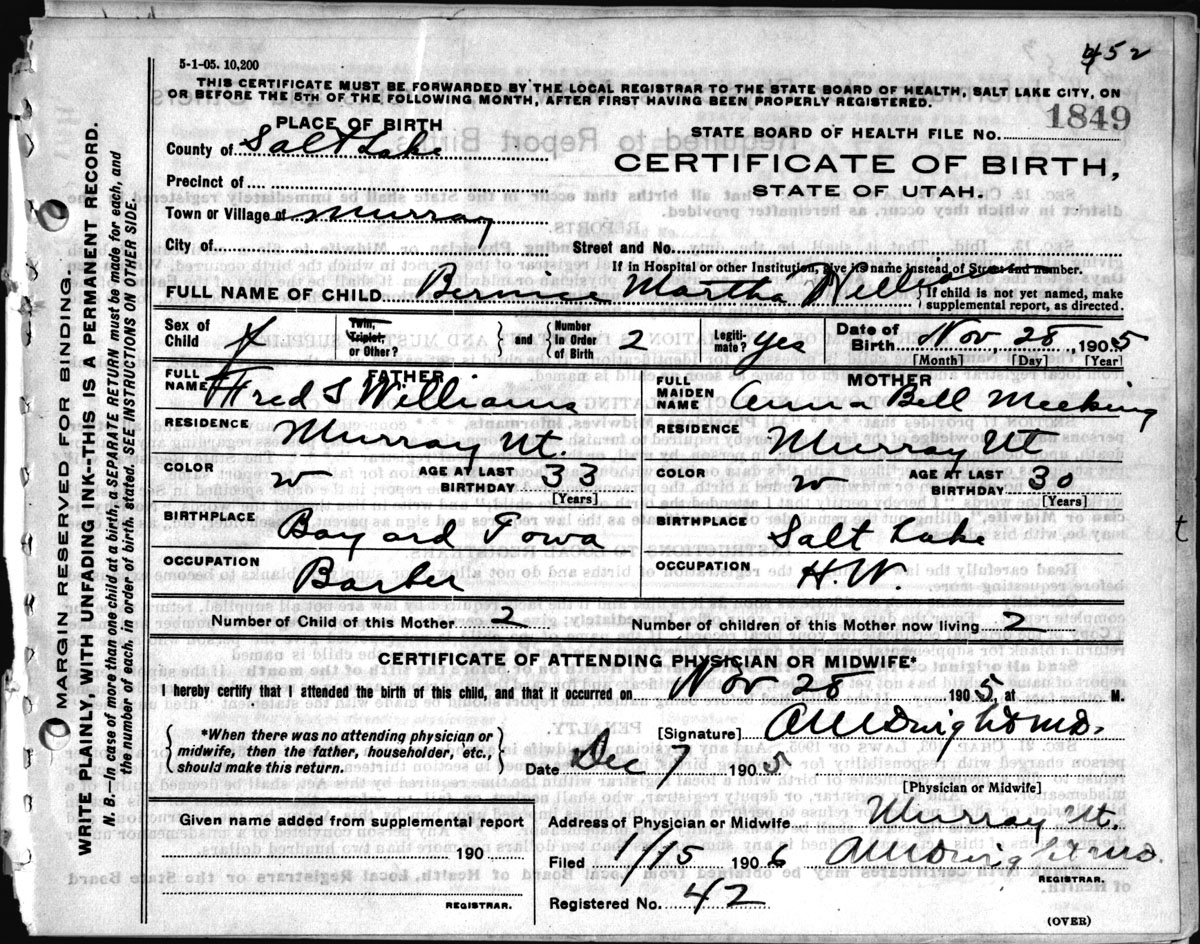 452
5-1-05. 10,200
THIS CERTIFICATE MUST BE FORWARDED BY THE LOCAL REGISTRAR TO THE STATE BOARD OF HEALTH, SALT LAKE CITY, ON
OR BEFORE THE 5TH OF THE FOLLOWING MONTH, AFTER FIRST HAVING BEEN PROPERLY REGISTERED.
PLACE OF BIRTH
STATE BOARD OF HEALTH FILE No. 1849
County of Salt Lake
CERTIFICATE OF BIRTH,
STATE OF UTAH.
Precinct of
Town or Village of Murray
City of
Street and No.
If in Hospital or other Institution, give its name instead of Street and number.
FULL NAME OF CHILD Bernice Martha
If child is not yet named, make
supplemental report, as directed.
Sex of Child f
Twin, Triplet, or Other?
and
Number In Order of Birth 2
Legitimate? yes
Date of Birth Nov. 28 1905
[Month] [Day] [Year]
FATHER
FULL NAME Fred S Williams
RESIDENCE Murray Ut.
COLOR w
AGE AT LAST BIRTHDAY 33
[Years]
BIRTHPLACE Bayard Iowa
OCCUPATION Barber
MOTHER
FULL MAIDEN NAME Anna Bell
RESIDENCE Murray Ut
COLOR w
AGE AT LAST BIRTHDAY 30
[Years]
BIRTHPLACE Salt Lake
OCCUPATION H.W.
Number of Child of this Mother 2
Number of children of this Mother now living 2
CERTIFICATE OF ATTENDING PHYSICIAN OR MIDWIFE*
I hereby certify that I attended the birth of this child, and that it occurred on Nov 28 1905 at M.
*When there was no attending physician or
midwife, then the father, householder, etc.,
should make this return.
[Signature]
Date Dec 7 1905
[Physician or Midwife]
Given name added from supplemental report
190
REGISTRAR.
Address of Physician or Midwife Murray Ut.
Filed 1/15 1906
REGISTRAR.
Registered No. 42
(OVER)
MARGIN RESERVED FOR BINDING.
WRITE PLAINLY, WITH UNFADING INK--THIS IS A PERMANENT RECORD.
N. B.—In case of more than one child at a birth, a SEPARATE RETURN must be made for each, and
the number of each, in order of birth, stated. SEE INSTRUCTIONS ON OTHER SIDE.